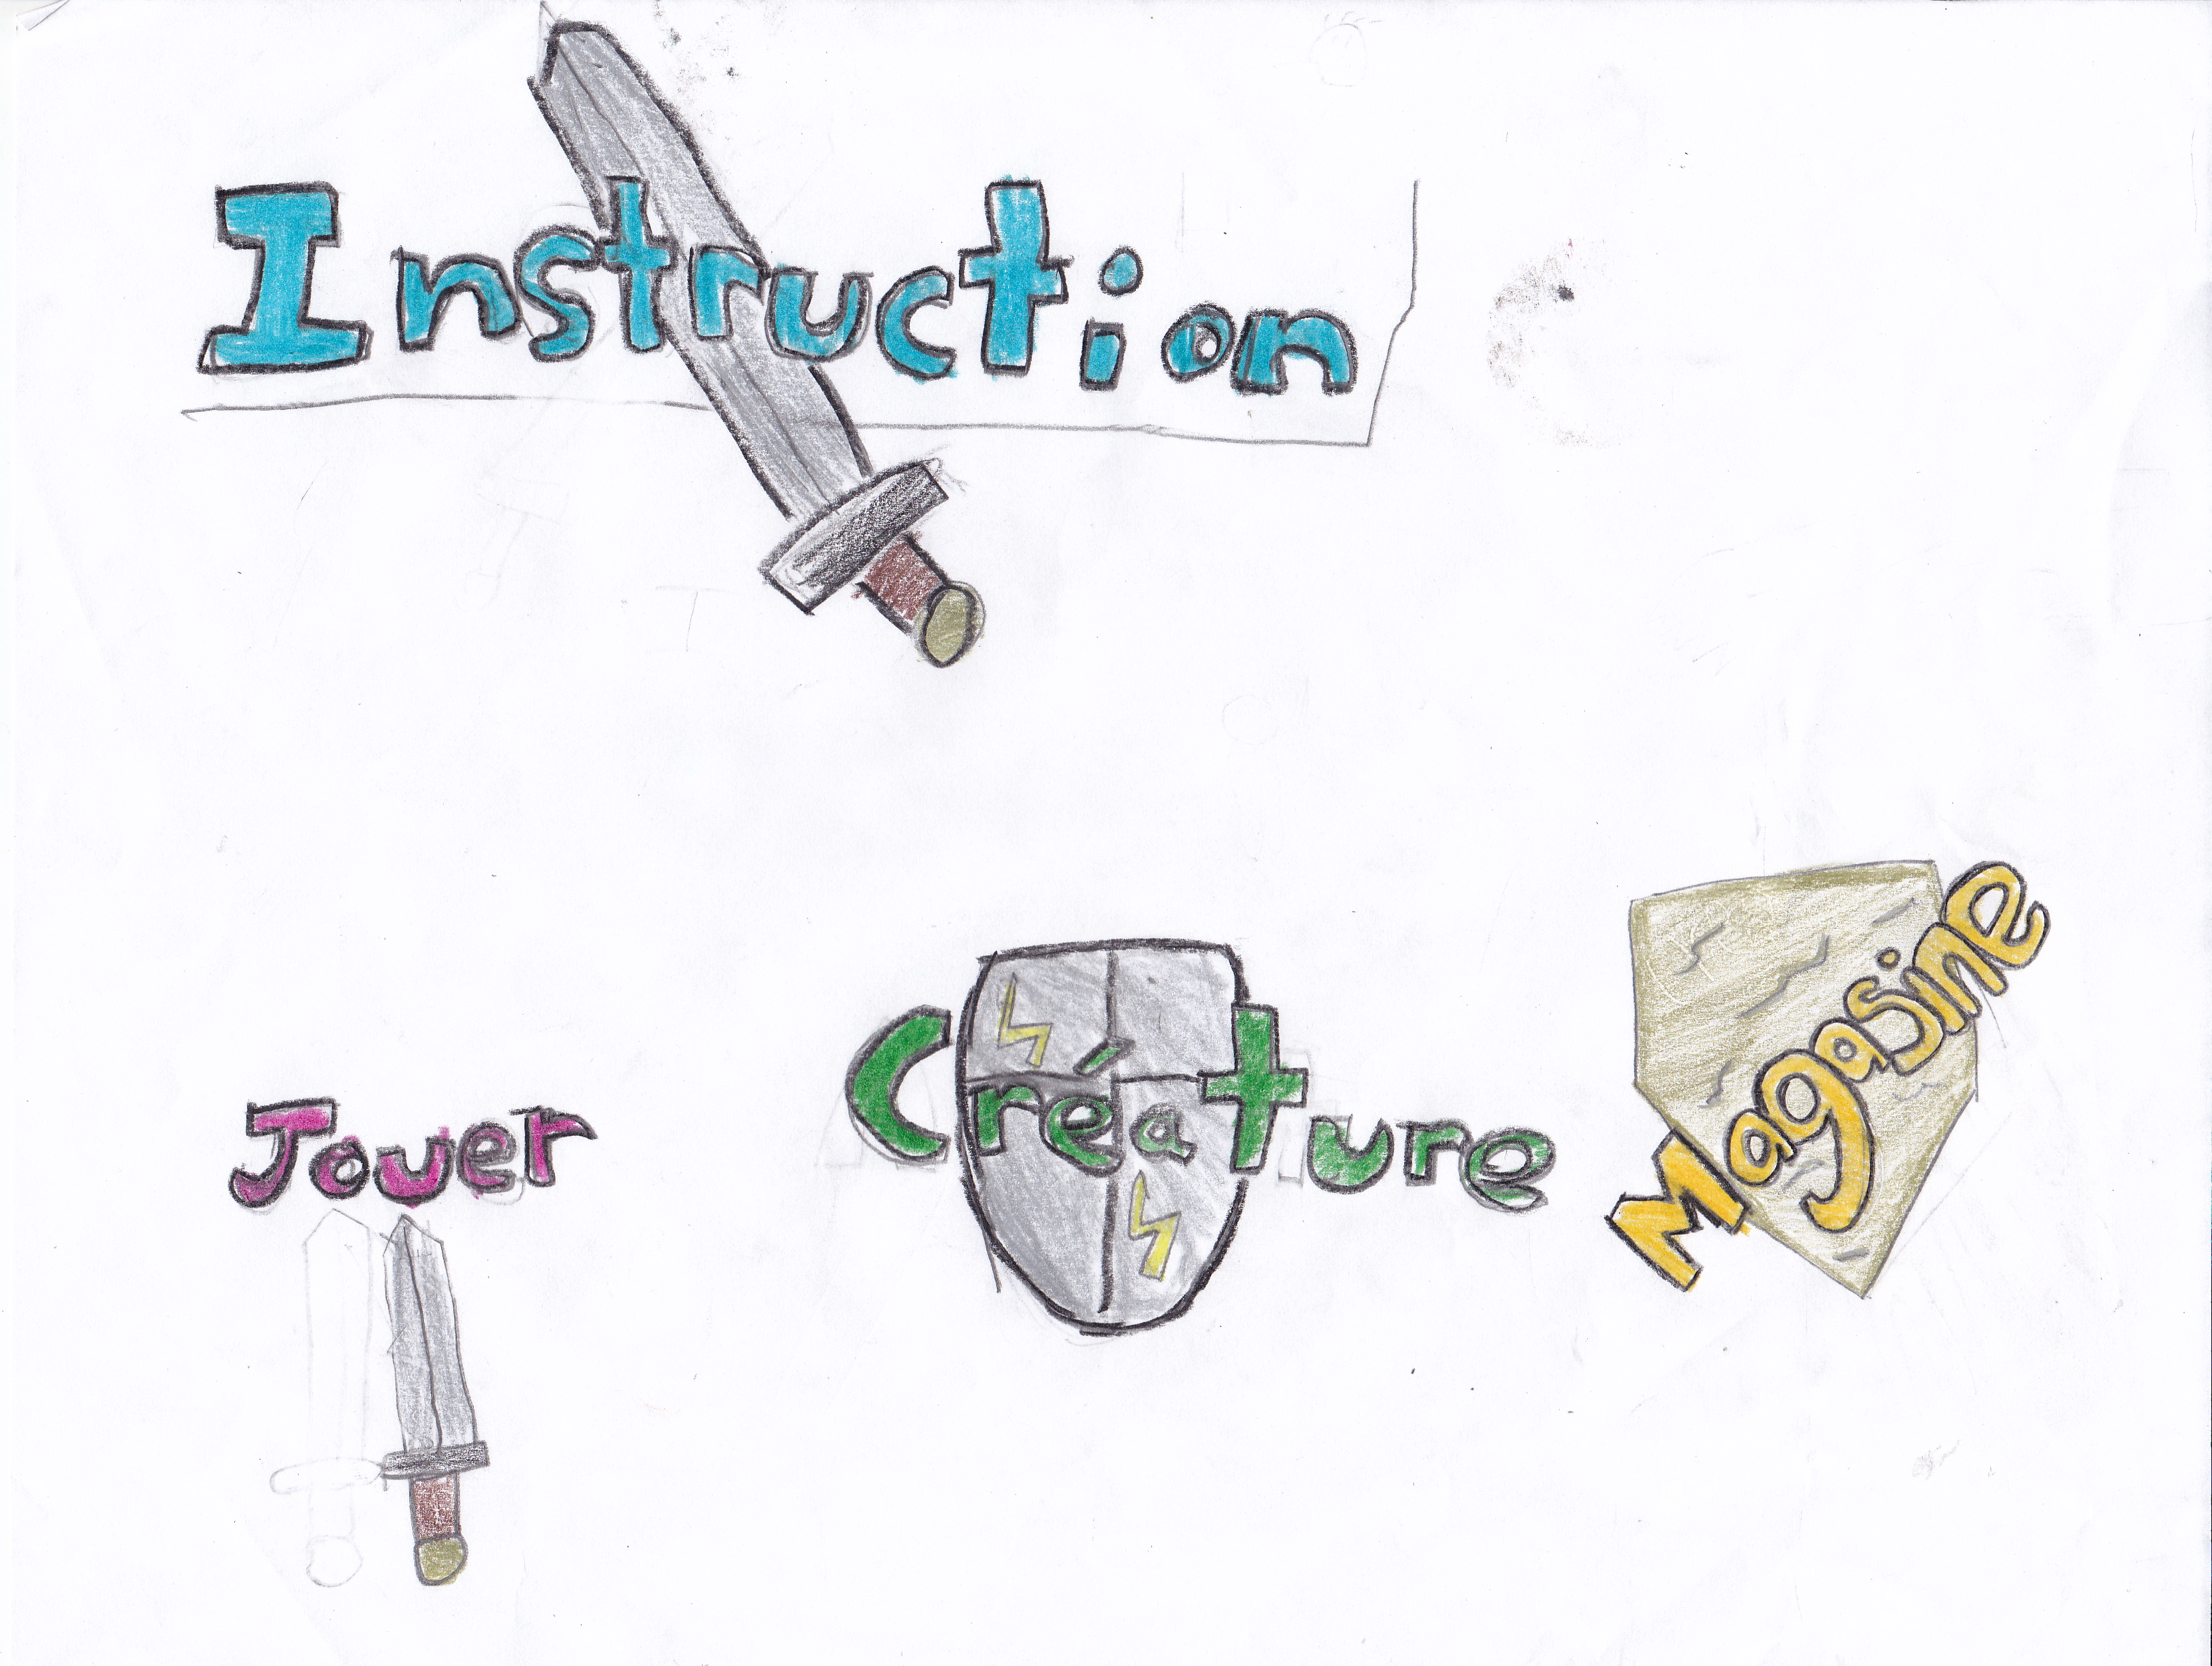 Instruction
Jouer
Créature
Magasine